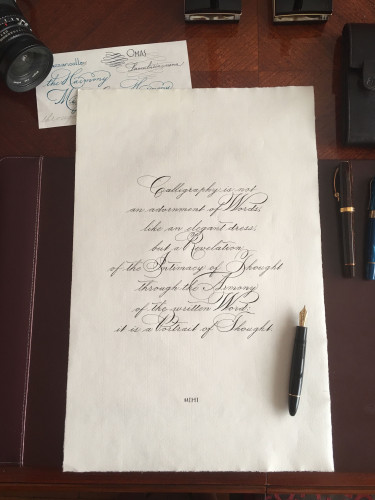 OMAS
the Harmony
Calligraphy is not
an adornment of Words,
like an elegant dress,
but a Revelation
of the Intimacy of Thought
through the Armony
of the written Word_
it is a Portrait of Thought.